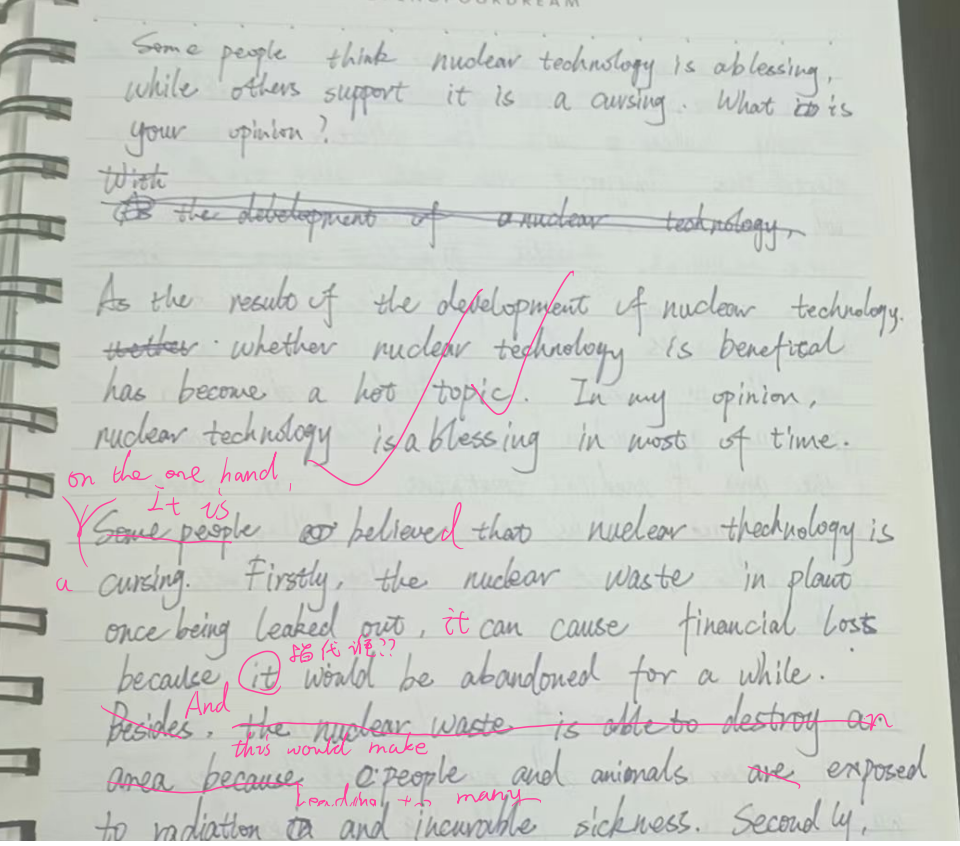 DREAM
Some people think nuclear technology is ablessing,
while others support it is a cursing. What is
your opinion?
With
the development of a nuclear technology,
As the result of the development of nuclear technology.
whether nuclear technology is benefical
has become a hot topic. In my opinion,
nuclear technology is a blessing in most of time.
on the one hand,
It is
Some people believed that nuclear thechnology is
a cursing. Firstly, the nuclear waste in plant
once being leaked out, it can cause financial losts
指代谁??
because it would be abandoned for a while.
And
Besides, the nuclear waste is able to destroy an
this would make
area because people and animals are exposed
leading to many
to radiation and incurable sickness. Secondly,